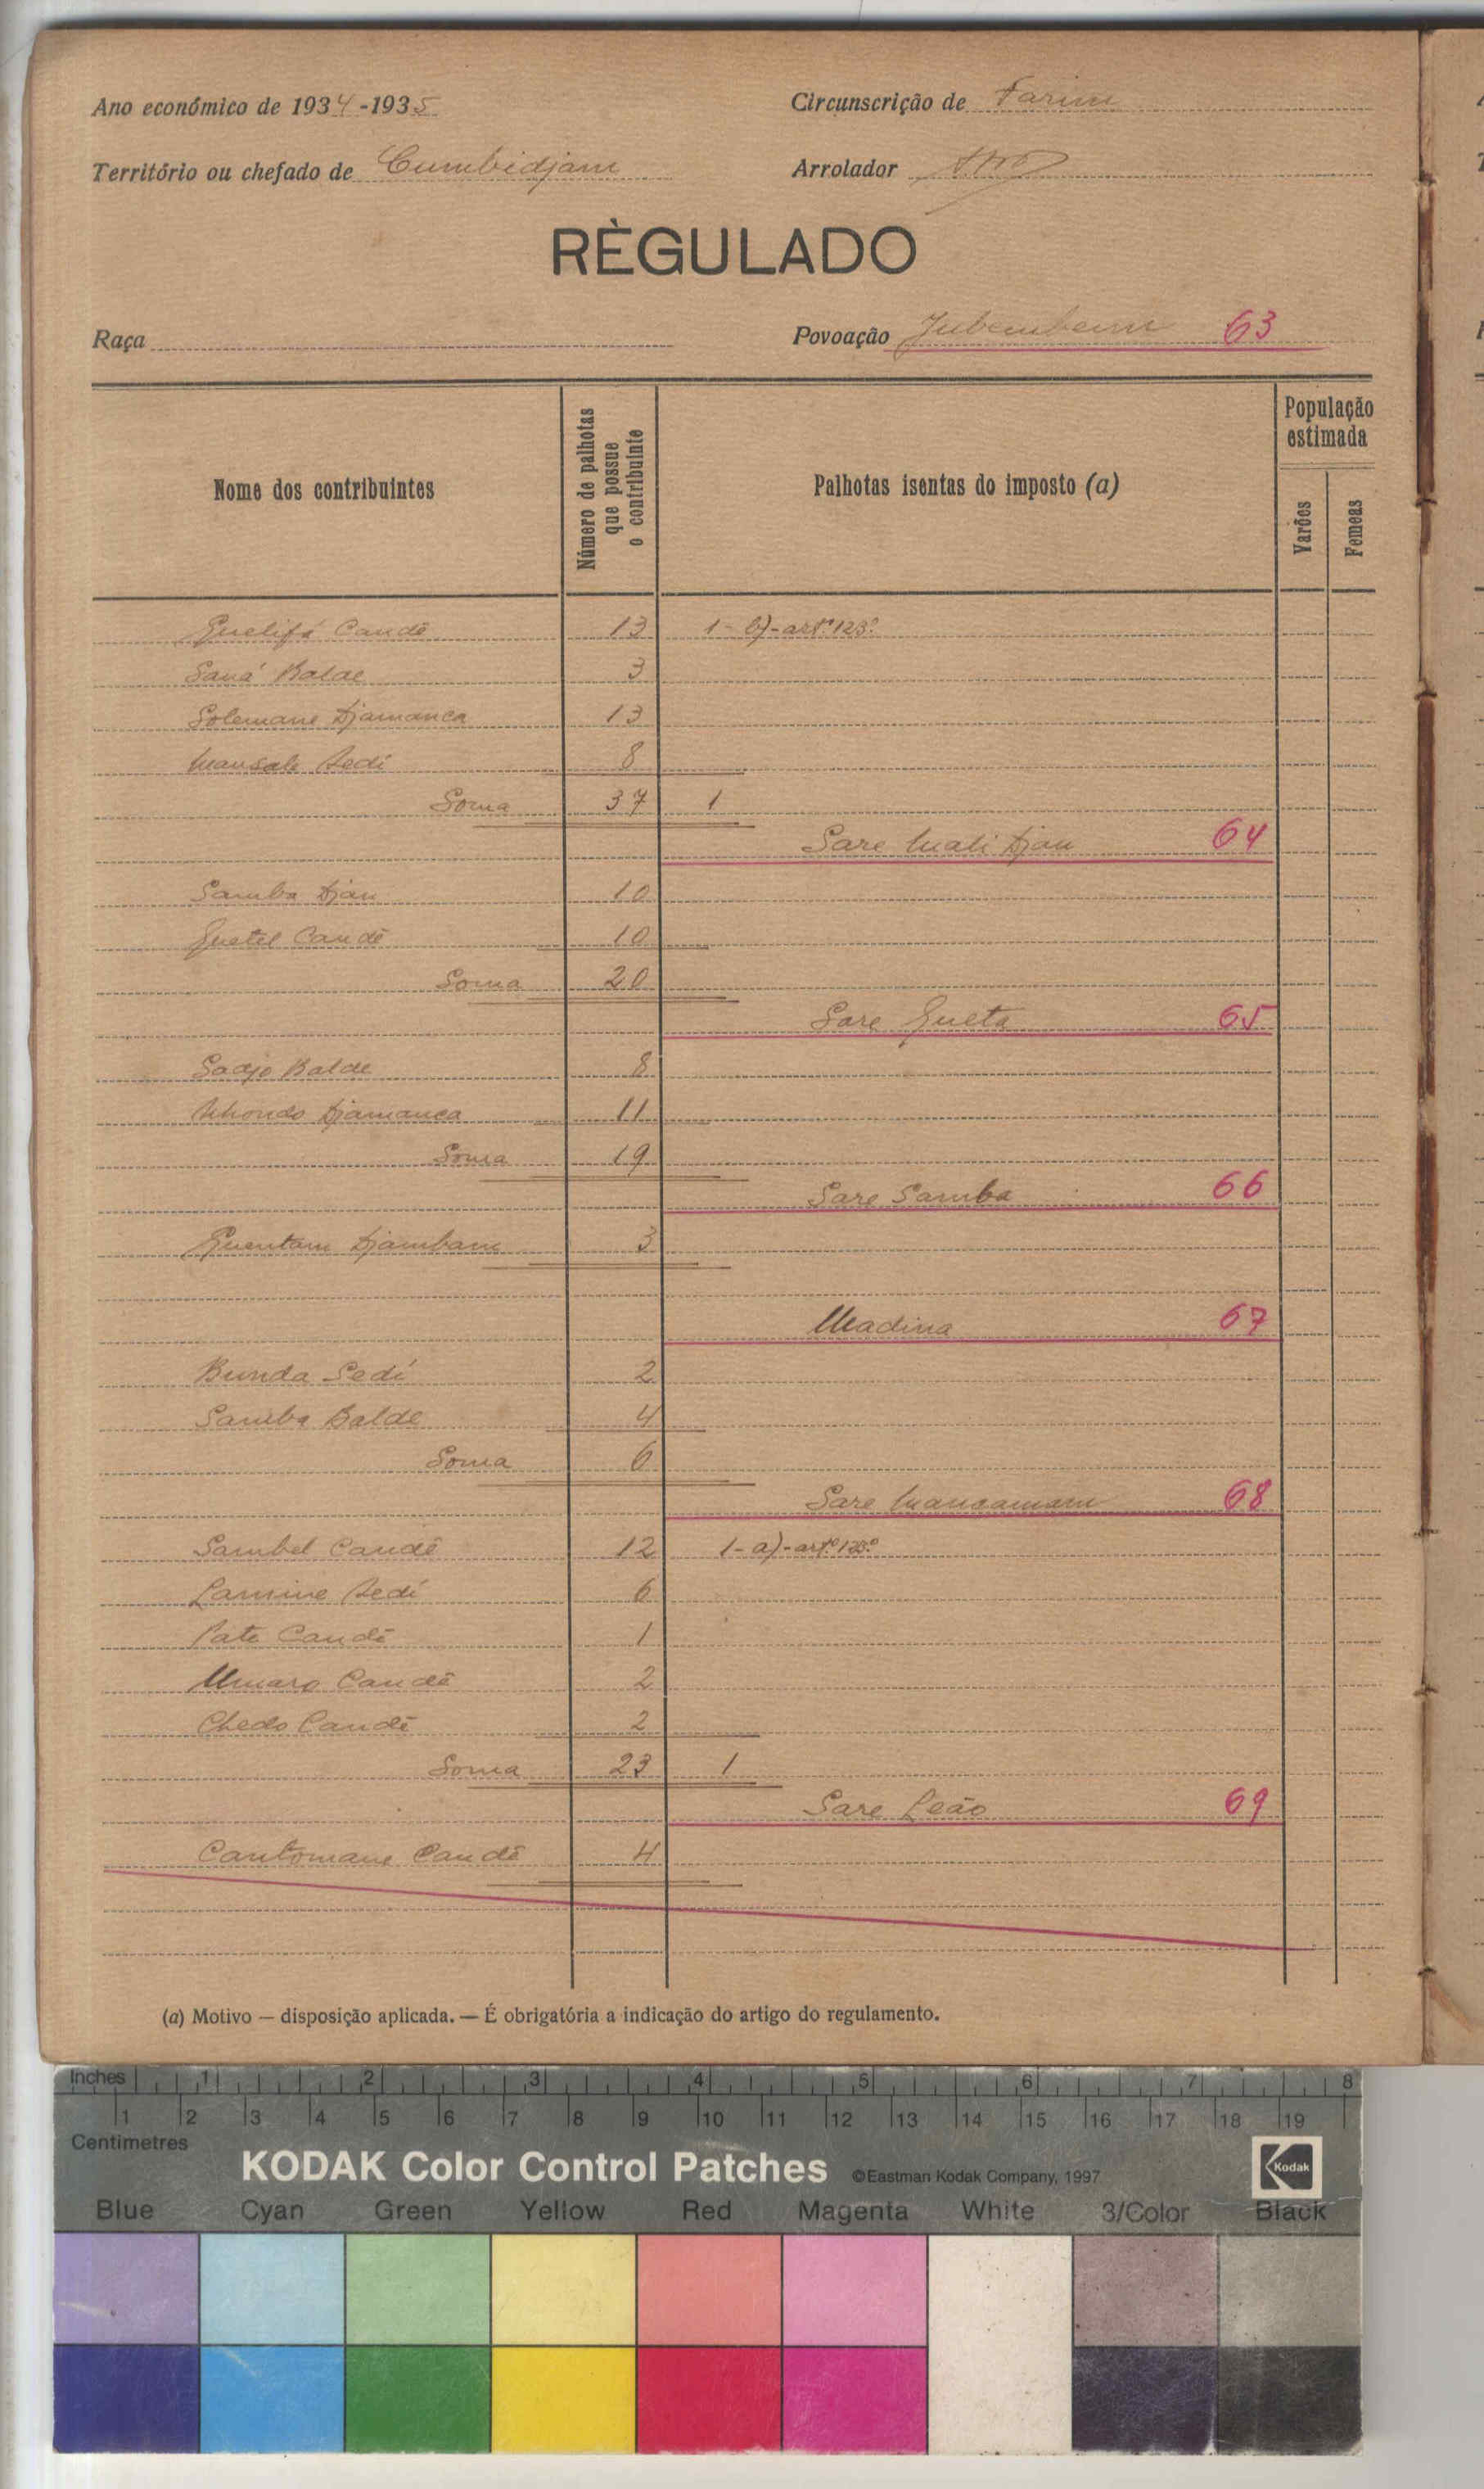 Ano económico de 1934-1935 Circunscrição de Farim
Território ou chefado de Cumbidjam Arrolador
RÈGULADO
Raça Povoação Jubembem 63
Nome dos contribuintes Número de palhotas que possue o contribuinte Palhotas isentas do imposto (a) População estimada Varões Femeas
Guelifá Candê 13 1- b)-artº.123º.
Saná Balde 3
Solemane Djamanca 13
Mansale Sedi 8
Soma 37 1
Sare Mali Djau 64
Samba Djau 10
Guetel Candê 10
Soma 20
Sare Gueta 65
Sadjo Balde 8
Djamanca 11
Soma 19
Sare Samba 66
Quentam Djambam 3
Madina 67
Bunda Sedi 2
Samba Balde 4
Soma 6
Sare Mancamam 68
Sambel Candê 12 1-a)-artº.123º.
Lamine Sedi 6
Pate Candê 1
Umaro Candê 2
Chedo Candê 2
Soma 23 1
Sare Leão 69
Cantomane Candê 4
(a) Motivo — disposição aplicada. — É obrigatória a indicação do artigo do regulamento.
Inches 1 2 3 4 5 6 7 8
1 2 3 4 5 6 7 8 9 10 11 12 13 14 15 16 17 18 19
Centimetres
KODAK Color Control Patches ©Eastman Kodak Company, 1997 Kodak
Blue Cyan Green Yellow Red Magenta White 3/Color Black